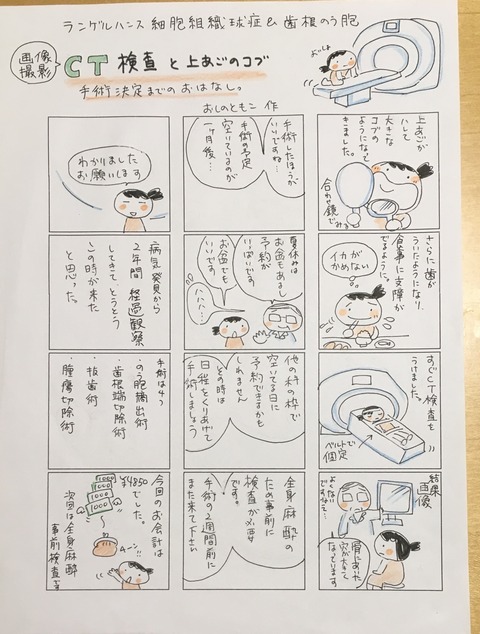 ランゲルハンス細胞組織球症& 歯根のう胞
画像
撮影
CT 検査と上あごのコブ
手術決定までのおはなし。
おしのともこ 作
よいしょ
上あごが
ハレて
大きな
コブの
ように なって
きました。
合わせ鏡でみる
さらに 歯が
ういたようになり、
食事に支障が
でるように。
イカが
かめない
すぐCT検査を
うけました。
ベルトで
固定
結果
画像
よくない
ですねえ…
骨にあいた
穴が大きく
なっています
手術したほうが
いいですね…
手術の予定
空いているのが
一ヶ月後…
夏休みは
お盆もあるし
予約が
いっぱいです。
お盆でも
いいです。
ハハハ…
他の科の枠で
空いてる日に
予約できるかも
しれません
その時は
日程をくりあげて
手術しましょう
全身麻酔の
ため事前に
検査が必要
です。
手術の2週間前に
また来て下さい
わかりました
お願いします
病気発見から
2年間 経過観察
してきて とうとう
この時が来た
と思った。
手術は4つ
・のう胞摘出術
・歯根端切除術
・抜歯術
・腫瘍切除術
今回のお会計は
¥4850でした。
1000
1000
1000
1000
次回は全身麻酔
事前検査です